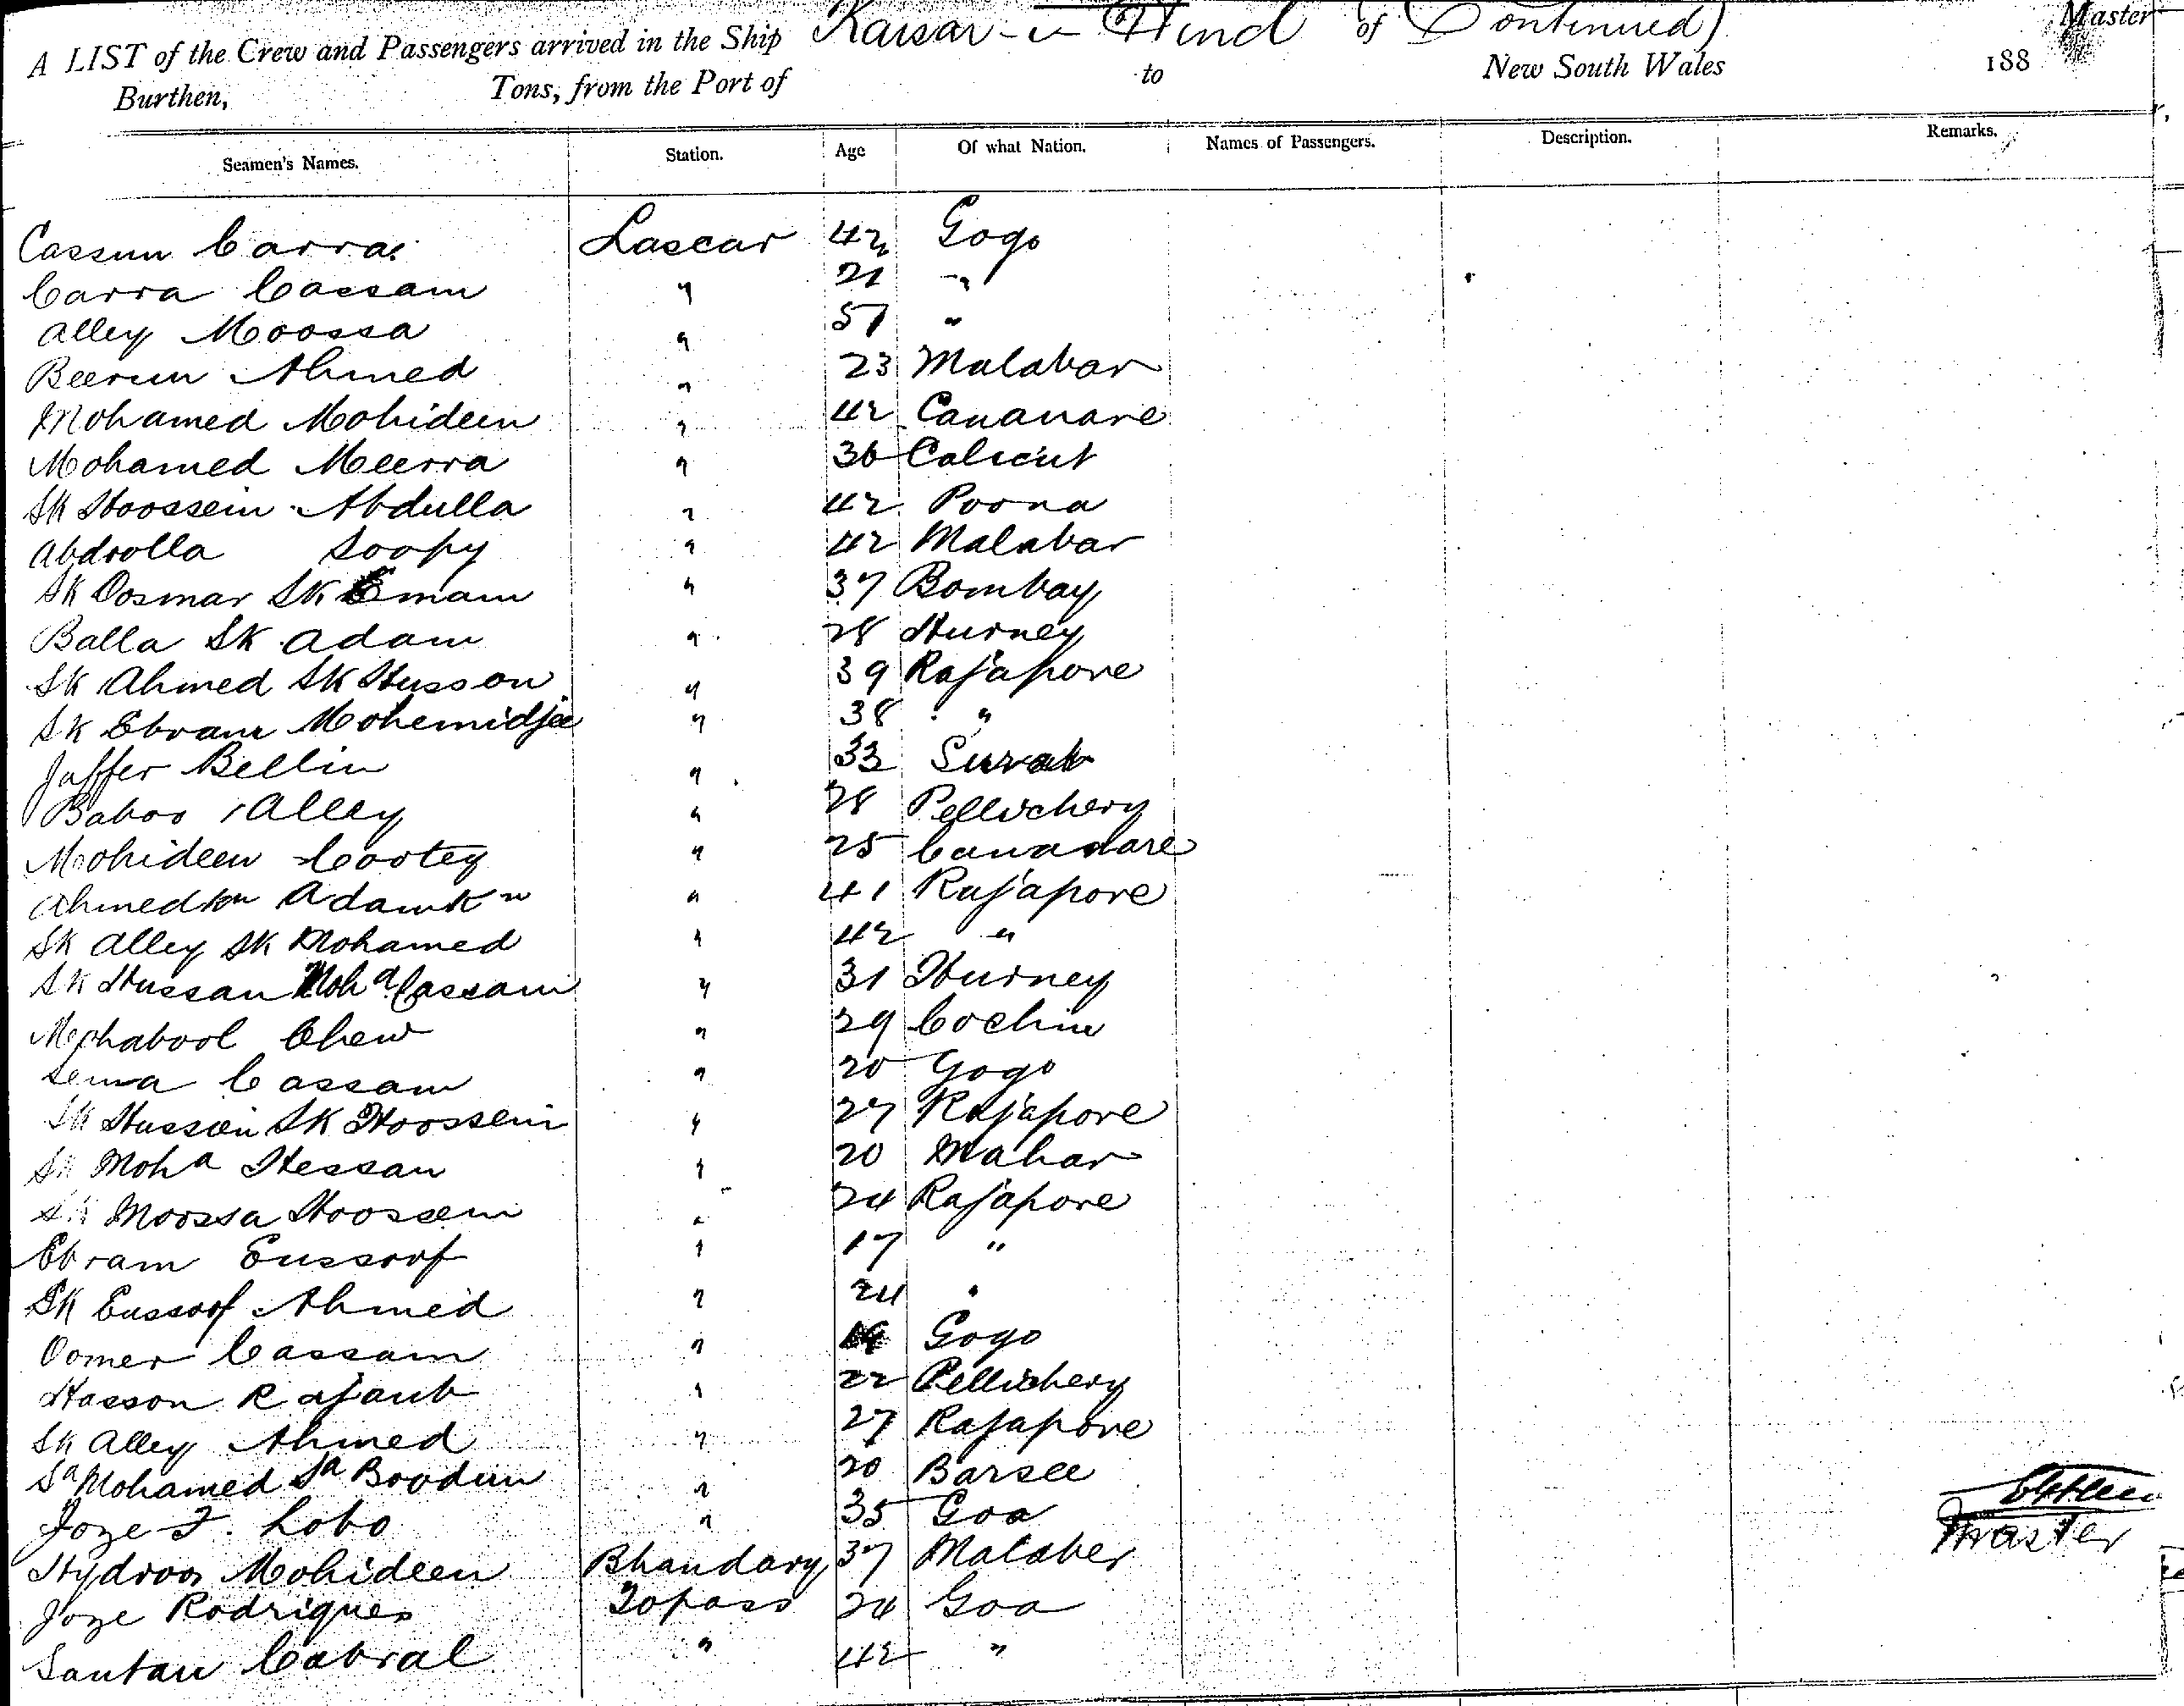 A LIST of the Crew and Passengers arrived in the Ship Kaisar-i-Hind of (Continued) Master
Burthen, Tons, from the Port of to New South Wales 188
Seamen's Names. Station. Age Of what Nation. Names of Passengers. Description. Remarks.
Cassum Carra Lascar 42 Gogo
Carra Cassam " 21 "
Alley Moossa " 57 "
Beerun Ahmed " 23 Malabar
Mohamed Mohideen " 42 Cananare
Mohamed Meerra " 36 Calicut
Sk Hoossein Abdulla " 42 Poona
Abdoolla Soopy " 42 Malabar
Sk Oosmar Sk Emam " 37 Bombay
Balla Sk Adam " 28 Hurney
Sk Ahmed Sk Husson " 39 Rajapore
Sk Ebram Mohemidjee " 38 "
Jaffer Bellin " 33 Surat
Baboo Alley " 28 Pellichery
Mohideen Cootey " 25 Cananare
Ahmedkn Adamkn " 41 Rajapore
Sk Alley Sk Mohamed " 42 "
Sk Hussan Moha Cassam " 31 Hurney
Mohabool Chew " 29 Cochin
Sema Cassam " 20 Gogo
Sk Hussein Sk Hoossein " 27 Rajapore
Sk Moha Hessan " 20 Mahar
Sk Moossa Hoossein " 24 Rajapore
Ebram Eussoof " 17 "
Sk Eussoof Ahmed " 24 "
Oomer Cassam " Gogo
Hasson Rajaub " 22 Pellichery
Sk Alley Ahmed " 27 Rajapore
Sa Mohamed Sa Boodun " 20 Barsee
Joze F. Lobo " 35 Goa
Hydroos Mohideen Bhandary 37 Malaber
Master
Joze Rodrigues Topass 24 Goa
Santan Cabral " 42 "